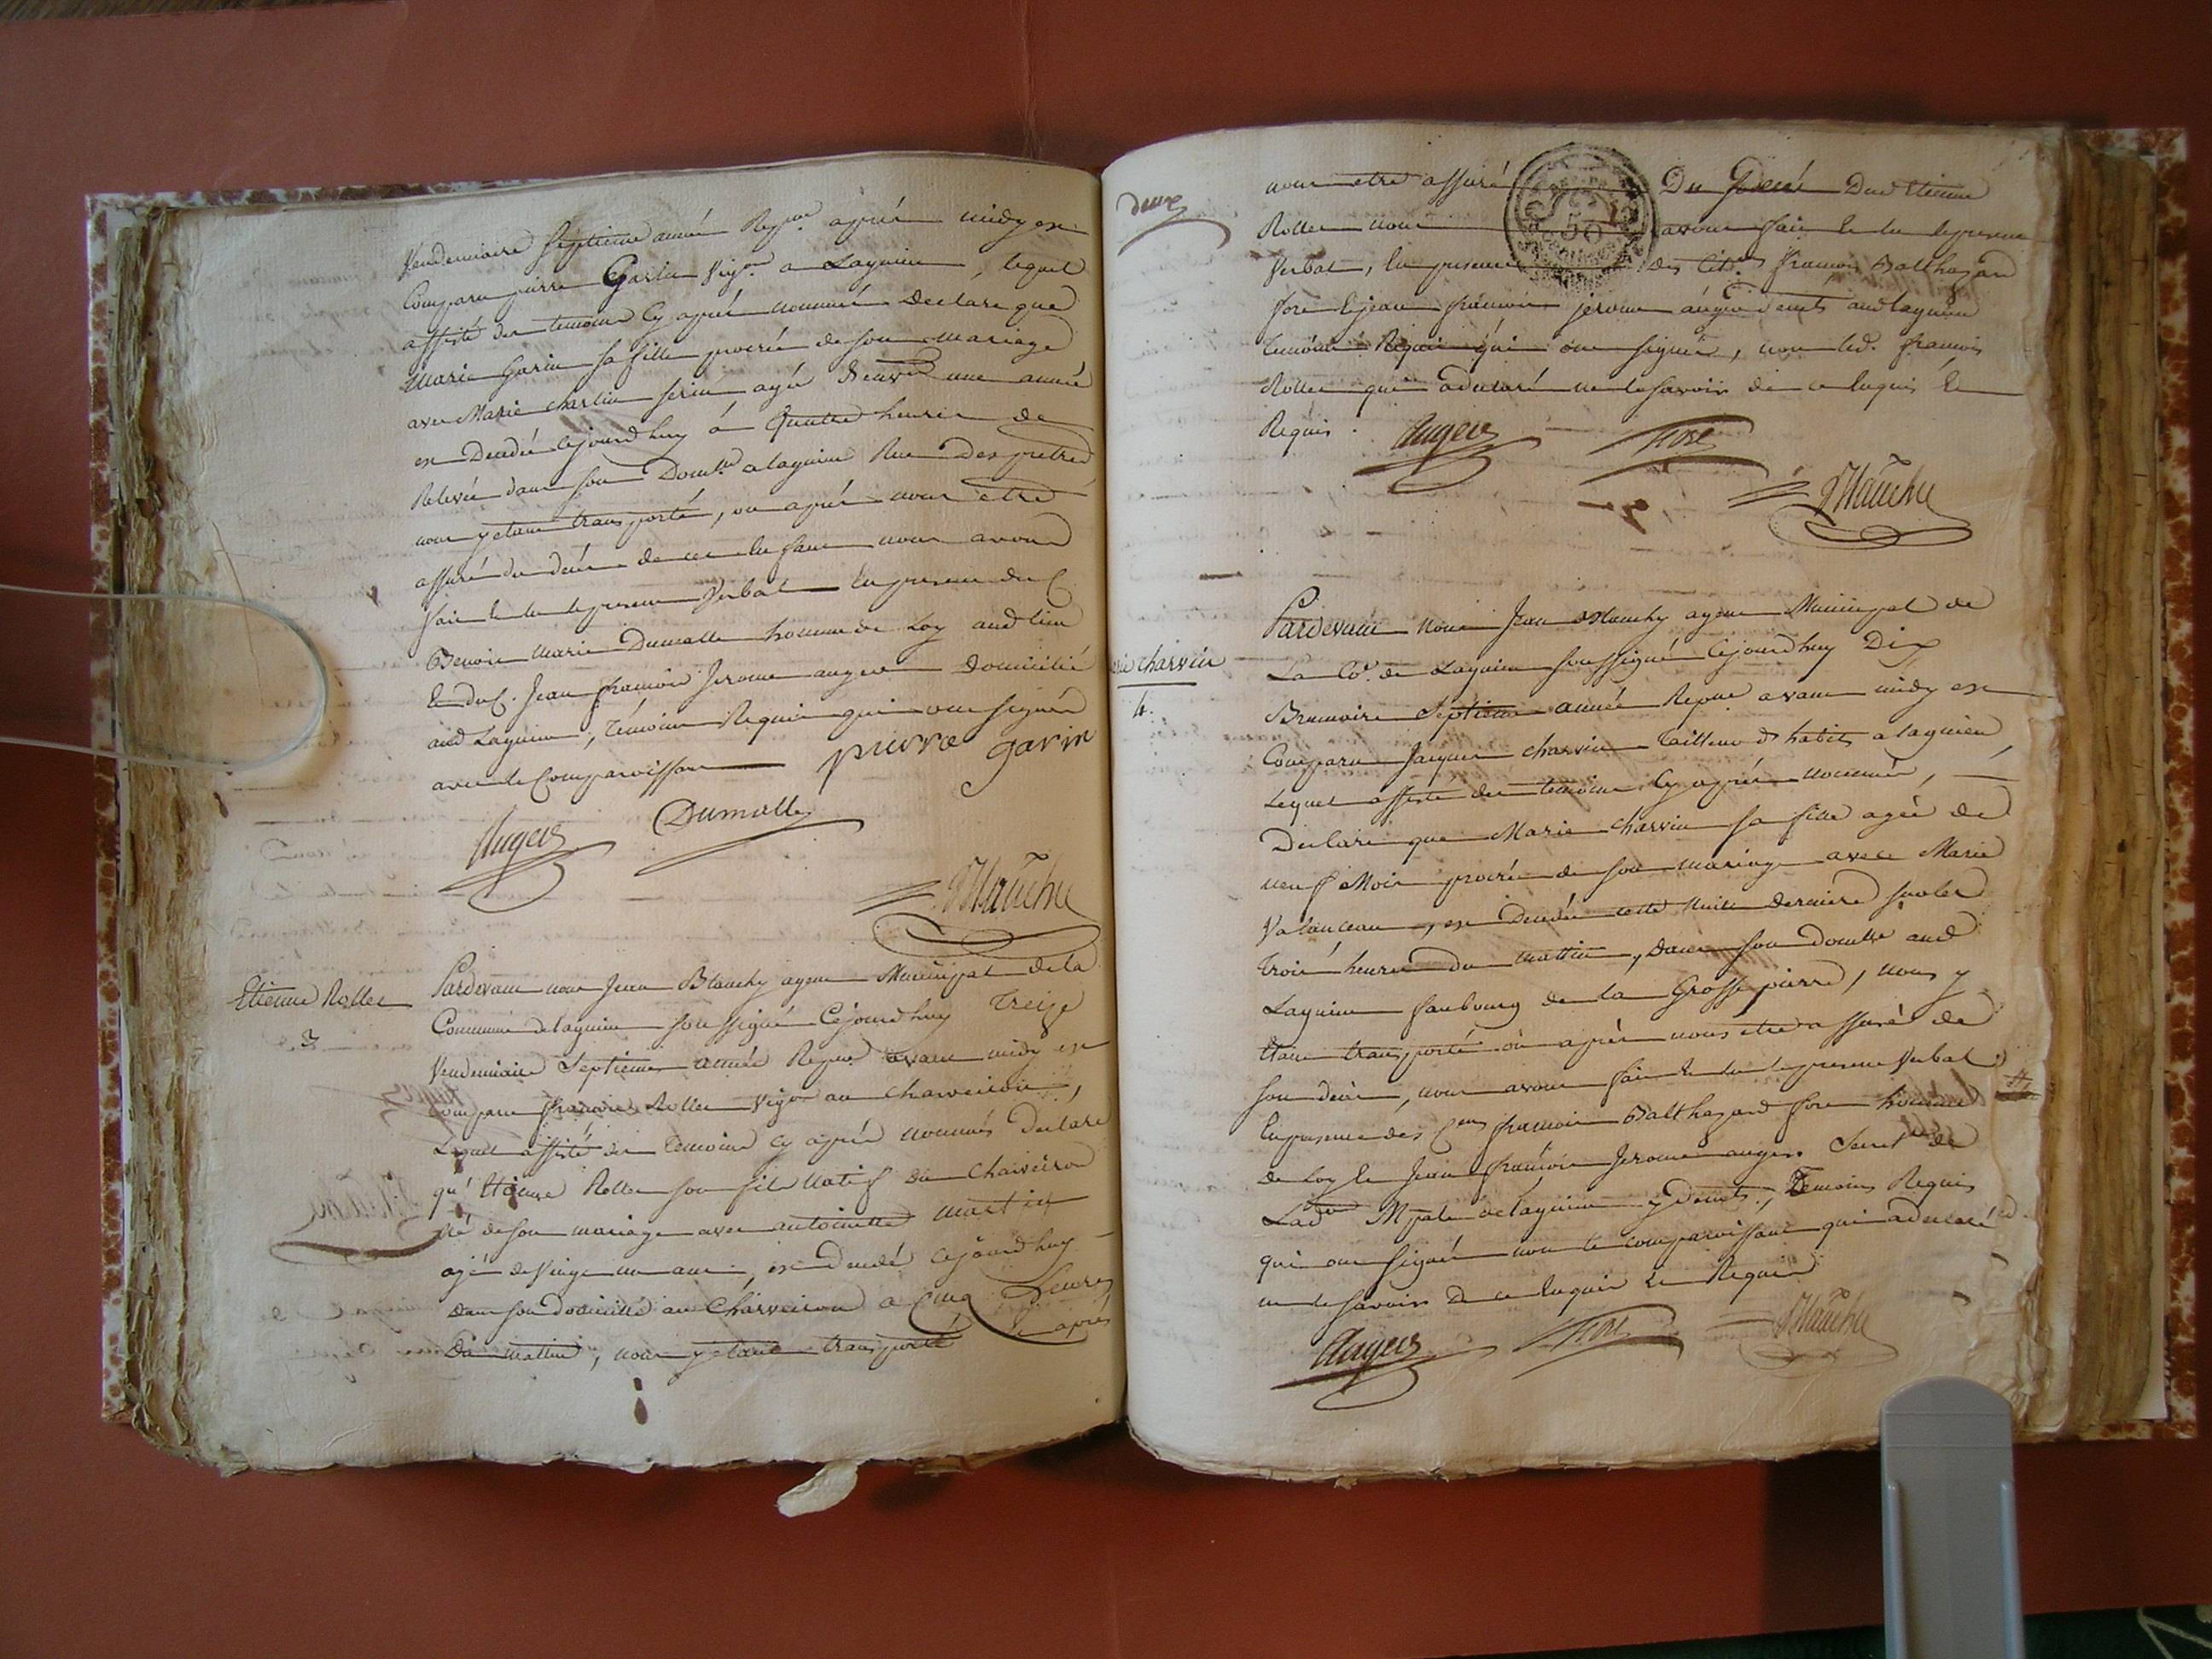 Vendemiaire septieme année Repne. après midy est
Comparu pierre Garin Vigon a Lagnieu, lequel
assisté des temoins cy après nommés Declare que
Marie Garin sa fille procréé de son mariage
avec Marie Charlin agée une année
est Decedée cejourd'huy á Quattre heures de
Relevée dans son Domlle a lagnieu Rue des pretres
nous y etant transporté, ou après nous etre
assuré du decés de cette enfant nous avons
fait et lu le present Verbal en presence du C
Benoit Marie Dumolle homme de Loy aud lieu
Et du C. Jean françois Jerome auger domicilié
aud Lagnieu, Témoins Requis qui ont signés
avec le Comparoissant pierre garin
Auger Dumolle
Blanchy
Etienne Rollet
3
Pardevant nous Jean Blanchy agent Municipal de la
Commune de lagnieu soussigné Cejourd'huy Treize
Vendemiaire Septieme année Repne avant midy est
comparu françois Rollet Vigon au Charveiron,
Lequel assisté des temoins cy après nommés Declare
qu'Etienne Rollet son fils Natif du Charveiron
né de son mariage avec antoinette martin
agé de Vingt un ans, est Decedé cejourd'huy
dans son domicille au Charveiron a Cinq heures
Du mattin, nous y etant transporté après
deux
nous etre assuré Du Decés Dud Etienne
Rollet nous avons fait et lu le present
Verbal, En presence des Citns françois Balthazard
fore et jean françois jerome auger demts aud lagnieu
temoins Requis qui ont signés, non led. françois
Rollet qui a declaré ne le savoir de ce Enquis et
Requis.
Auger fore
Blanchy
Charvin
4.
Pardevant Nous Jean Blanchy agent Municipal de
La Co. de Lagnieu soussigné Cejourd'huy Dix
Brumaire Septieme année Repne avant midy est
Comparu Jacques Charvin Tailleur d'habits a lagnieu
Lequel assisté des temoins cy après nommés,
Declare que Marie Charvin sa fille agée de
neuf Mois procréé de son mariage avec Marie
Valanceau, est Decedée cette nuit derniere sur les
trois heures du mattin, dans son domlle aud
Lagnieu faubourg de la Grosse pierre, nous y
etant transporté où après nous etre assuré de
son decès, nous avons fait et lu le present Verbal
En presence des Cens françois Balthazard fore homme
de Loy et Jean françois Jerome auger Secret de
Ladon Mpale de lagnieu y Demts, Temoins Requis
qui ont signés non le comparoissant qui a declaré
ne le savoir de ce Enquis et Requis
Auger fore Blanchy